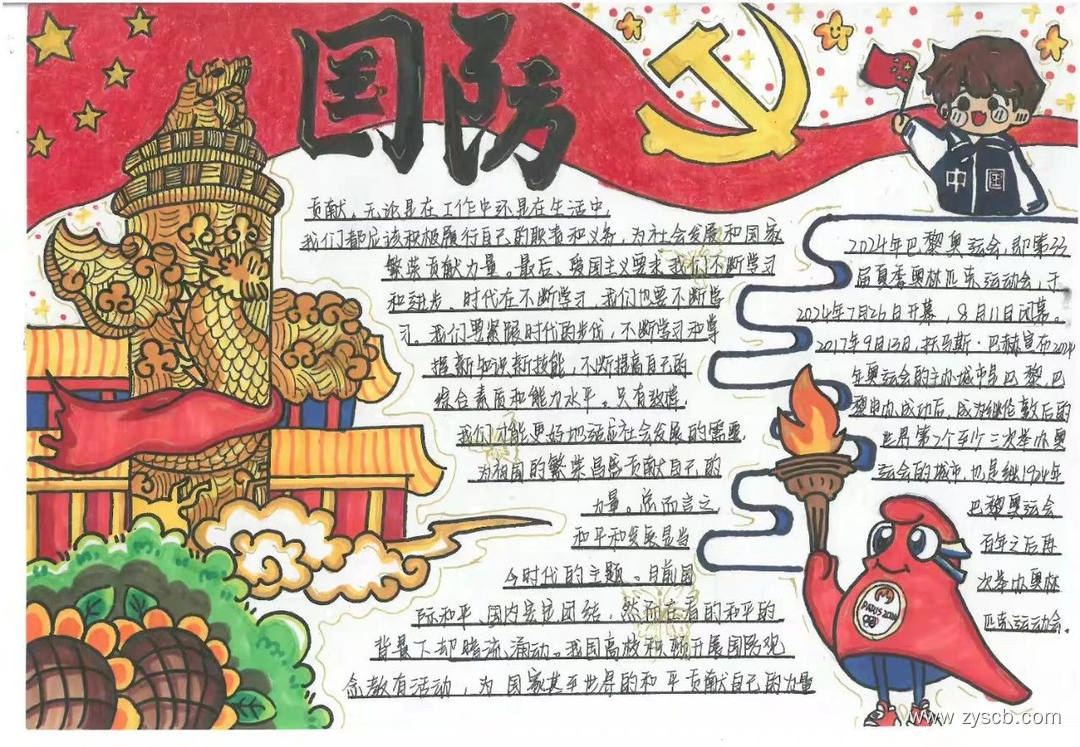 国防
中国
贡献。无论是在工作中还是在生活中
我们都应该积极履行自己的职责和义务,为社会发展和国家
繁荣贡献力量。最后、爱国主义要求我们不断学习
和进步。时代在不断学习,我们也要不断学
习。我们要紧跟时代的步伐,不断学习和掌
握新知识新技能,不断提高自己的
综合素质和能力水平。只有这样
我们才能更好地适应社会发展的需要
为祖国的繁荣昌盛贡献自己的
力量。总而言之
和平和发展是当
今时代的主题。目前国
际和平、国内安定团结,然而在看的和平的
背景下却暗流涌动。我国高校积极开展国防观
念教育活动,为国家甚至世界的和平贡献自己的力量
2024年巴黎奥运会,即第33
届夏季奥林匹克运动会,于
2024年7月26日开幕,8月11日闭幕。
2017年9月13日,托马斯·巴赫宣布2024
年奥运会的主办城市是巴黎,巴
黎申办成功后,成为继伦敦后的
世界第2个至少三次举办奥
运会的城市,也是继1924年
巴黎奥运会
百年之后再
次举办奥林
匹克运动会。
PARIS 2024
www.zyscb.com